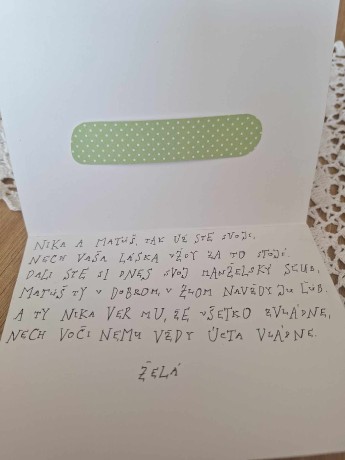 NIKA A MATÚŠ, TAK UŽ STE SVOJI,
NECH VAŠA LÁSKA VŽDY ZA TO STOJÍ.
DALI STE SI DNES SVOJ MANŽELSKÝ SĽUB,
MATÚŠ TY V DOBROM, V ZLOM NAVŽDY JU ĽÚB.
A TY NIKA VER MU, ŽE VŠETKO ZVLÁDNE,
NECH VOČI NEMU VŽDY ÚCTA VLÁDNE.
ŽELÁ